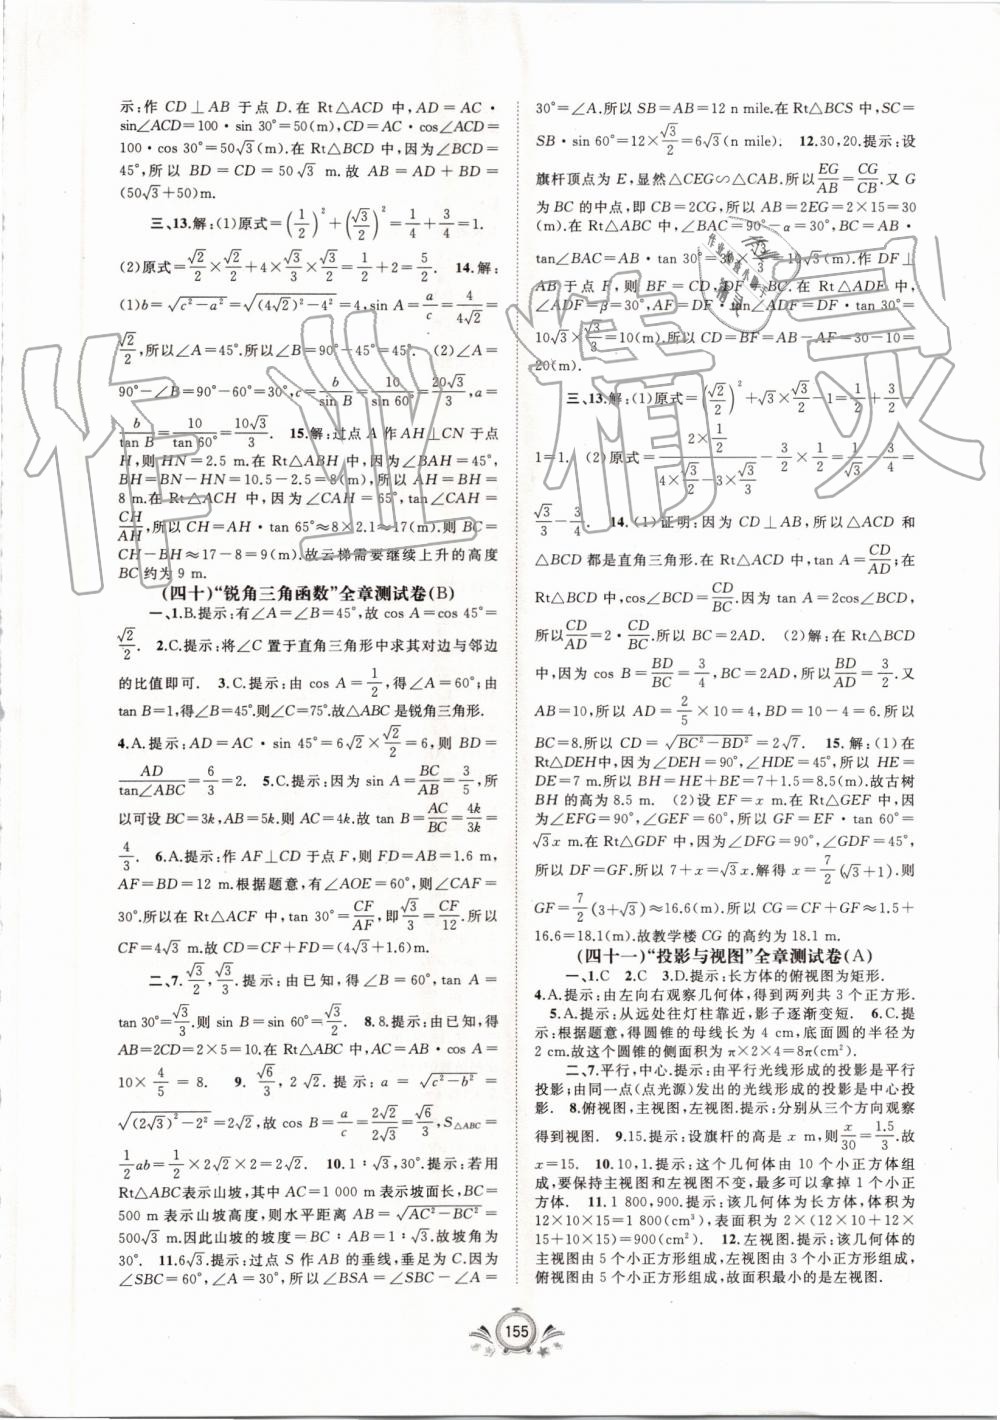 示:作 CD⊥AB 于点 D.在 Rt△ACD 中,AD=AC·
sin∠ACD=100·sin 30°=50(m),CD=AC·cos∠ACD=
100·cos 30°=50√3(m).在 Rt△BCD 中,因为∠BCD=
45°,所以 BD=CD=50√3 m.故 AB=AD+BD=
(50√3+50)m.
三、13.解:(1)原式=(1/2)²+(√3/2)²=1/4+3/4=1.
(2)原式=√2/2×√2/2+4×√3/2×√3/3=1/2+2=5/2. 14.解:
(1)b=√(c²-a²)=√((4√2)²-4²)=4,sin A=a/c=4/(4√2)=
√2/2,所以∠A=45°.所以∠B=90°-45°=45°. (2)∠A=
90°-∠B=90°-60°=30°.c=b/sin B=10/sin 60°=20√3/3,a=
b/tan B=10/tan 60°=10√3/3. 15.解:过点 A 作 AH⊥CN 于点
H,则 HN=2.5 m.在 Rt△ABH 中,∠BAH=45°,
BH=BN-HN=10.5-2.5=8(m),所以 AH=BH=
8 m.在 Rt△ACH 中,∠CAH=65°,tan∠CAH=
CH/AH,所以 CH=AH·tan 65°≈8×2.1≈17(m).则 BC=
CH-BH≈17-8=9(m).故云梯需要继续上升的高度
BC 约为 9 m.
(四十)“锐角三角函数”全章测试卷(B)
一、1.B.提示:有∠A=∠B=45°,故 cos A=cos 45°=
√2/2. 2.C.提示:将∠C 置于直角三角形中求其对边与邻边
的比值即可. 3.C.提示:由 cos A=1/2,得∠A=60°;由
tan B=1,得∠B=45°.则∠C=75°.故△ABC 是锐角三角形.
4.A.提示:AD=AC·sin 45°=6√2×√2/2=6,则 BD=
AD/tan∠ABC=6/3=2. 5.C.提示:因为 sin A=BC/AB=3/5,所
以可设 BC=3k,AB=5k.则 AC=4k.故 tan B=AC/BC=4k/3k=
4/3. 6.A.提示:作 AF⊥CD 于点 F,则 FD=AB=1.6 m,
AF=BD=12 m.根据题意,有∠AOE=60°,则∠CAF=
30°.所以在 Rt△ACF 中,tan 30°=CF/AF,即√3/3=CF/12.所以
CF=4√3 m.故 CD=CF+FD=(4√3+1.6)m.
二、7.√3/2. 提示:由已知,得∠B=60°,tan A=
tan 30°=√3/3.则 sin B=sin 60°=√3/2. 8.8.提示:由已知,得
AB=2CD=2×5=10.在 Rt△ABC 中,AC=AB·cos A=
10×4/5=8. 9.√6/3,2√2. 提示:a=√(c²-b²)
=√((2√3)²-2²)=2√2,故 cos B=a/c=2√2/2√3=√6/3,S△ABC=
1/2ab=1/2×2√2×2=2√2. 10.1∶√3,30°.提示:若用
Rt△ABC 表示山坡,其中 AC=1 000 m 表示坡面长,BC=
500 m 表示山坡高度,则水平距离 AB=√(AC²-BC²)=
500√3 m.因此山坡的坡度=BC∶AB=1∶√3.故坡角为
30°. 11.6√3.提示:过点 S 作 AB 的垂线,垂足为 C.因为
∠SBC=60°,∠A=30°,所以∠BSA=∠SBC-∠A=
30°=∠A.所以 SB=AB=12 n mile.在 Rt△BCS 中,SC=
SB·sin 60°=12×√3/2=6√3(n mile). 12.30,20.提示:设
旗杆顶点为 E,显然△CEG∽△CAB.所以EG/AB=CG/CB.又 G
为 BC 的中点,即 CB=2CG,所以 AB=2EG=2×15=30
(m).在 Rt△ABC 中,∠BAC=90°-α=30°,BC=AB·
tan∠BAC=AB·tan 30°=30×√3/3=10√3(m).作 DF⊥
AB 于点 F,则 BF=CD,DF=BC.在 Rt△ADF 中,
∠ADF=β=30°,AF=DF·tan∠ADF=DF·tan 30°=
10√3×√3/3=10(m).所以 CD=BF=AB-AF=30-10=
20(m).
三、13.解:(1)原式=(√2/2)²+√3×√3/2-1=1/2+3/2-
1=1. (2)原式=(2×1/2)/(4×√3/2-√3)-3/2×1/2=1/√3-3/4=
√3/3-3/4. 14.(1)证明:因为 CD⊥AB,所以△ACD 和
△BCD 都是直角三角形.在 Rt△ACD 中,tan A=CD/AD.在
Rt△BCD 中,cos∠BCD=CD/BC.因为 tan A=2cos∠BCD,
所以CD/AD=2·CD/BC.所以 BC=2AD. (2)解:在 Rt△BCD
中,因为 cos B=BD/BC=3/4,BC=2AD,所以BD/AD=3/2.又
AB=10,所以 AD=2/5×10=4,BD=10-4=6.所以
BC=8.所以 CD=√(BC²-BD²)=2√7. 15.解:(1)在
Rt△DEH中,因为∠DEH=90°,∠HDE=45°,所以 HE=
DE=7 m.所以 BH=HE+BE=7+1.5=8.5(m).故古树
BH 的高为 8.5 m. (2)设 EF=x m.在 Rt△GEF 中,因
为∠EFG=90°,∠GEF=60°,所以 GF=EF·tan 60°=
√3x m.在 Rt△GDF 中,因为∠DFG=90°,∠GDF=45°,
所以 DF=GF.所以 7+x=√3x.解得 x=7/2(√3+1).则
GF=7/2(3+√3)≈16.6(m).所以 CG=CF+GF≈1.5+
16.6=18.1(m).故教学楼 CG 的高约为 18.1 m.
(四十一)“投影与视图”全章测试卷(A)
一、1.C 2.C 3.D.提示:长方体的俯视图为矩形.
4.A.提示:由左向右观察几何体,得到两列共 3 个正方形.
5.A.提示:从远处往灯柱靠近,影子逐渐变短. 6.C.提
示:根据题意,得圆锥的母线长为 4 cm,底面圆的半径为
2 cm.故这个圆锥的侧面积为 π×2×4=8π(cm²).
二、7.平行,中心.提示:由平行光线形成的投影是平行
投影;由同一点(点光源)发出的光线形成的投影是中心投
影. 8.俯视图,主视图,左视图.提示:分别从三个方向观察
得到视图. 9.15.提示:设旗杆的高是 x m,则x/30=1.5/3.故
x=15. 10.10,1.提示:这个几何体由 10 个小正方体组
成,要保持主视图和左视图不变,最多可以拿掉 1 个小正
方体. 11.1 800,900.提示:该几何体为长方体,体积为
12×10×15=1 800(cm³),表面积为 2×(12×10+12×
15+10×15)=900(cm²). 12.左视图.提示:该几何体的
主视图由 5 个小正方形组成,左视图由 3 个小正方形组成,
俯视图由 5 个小正方形组成,故面积最小的是左视图.
155
作业精灵